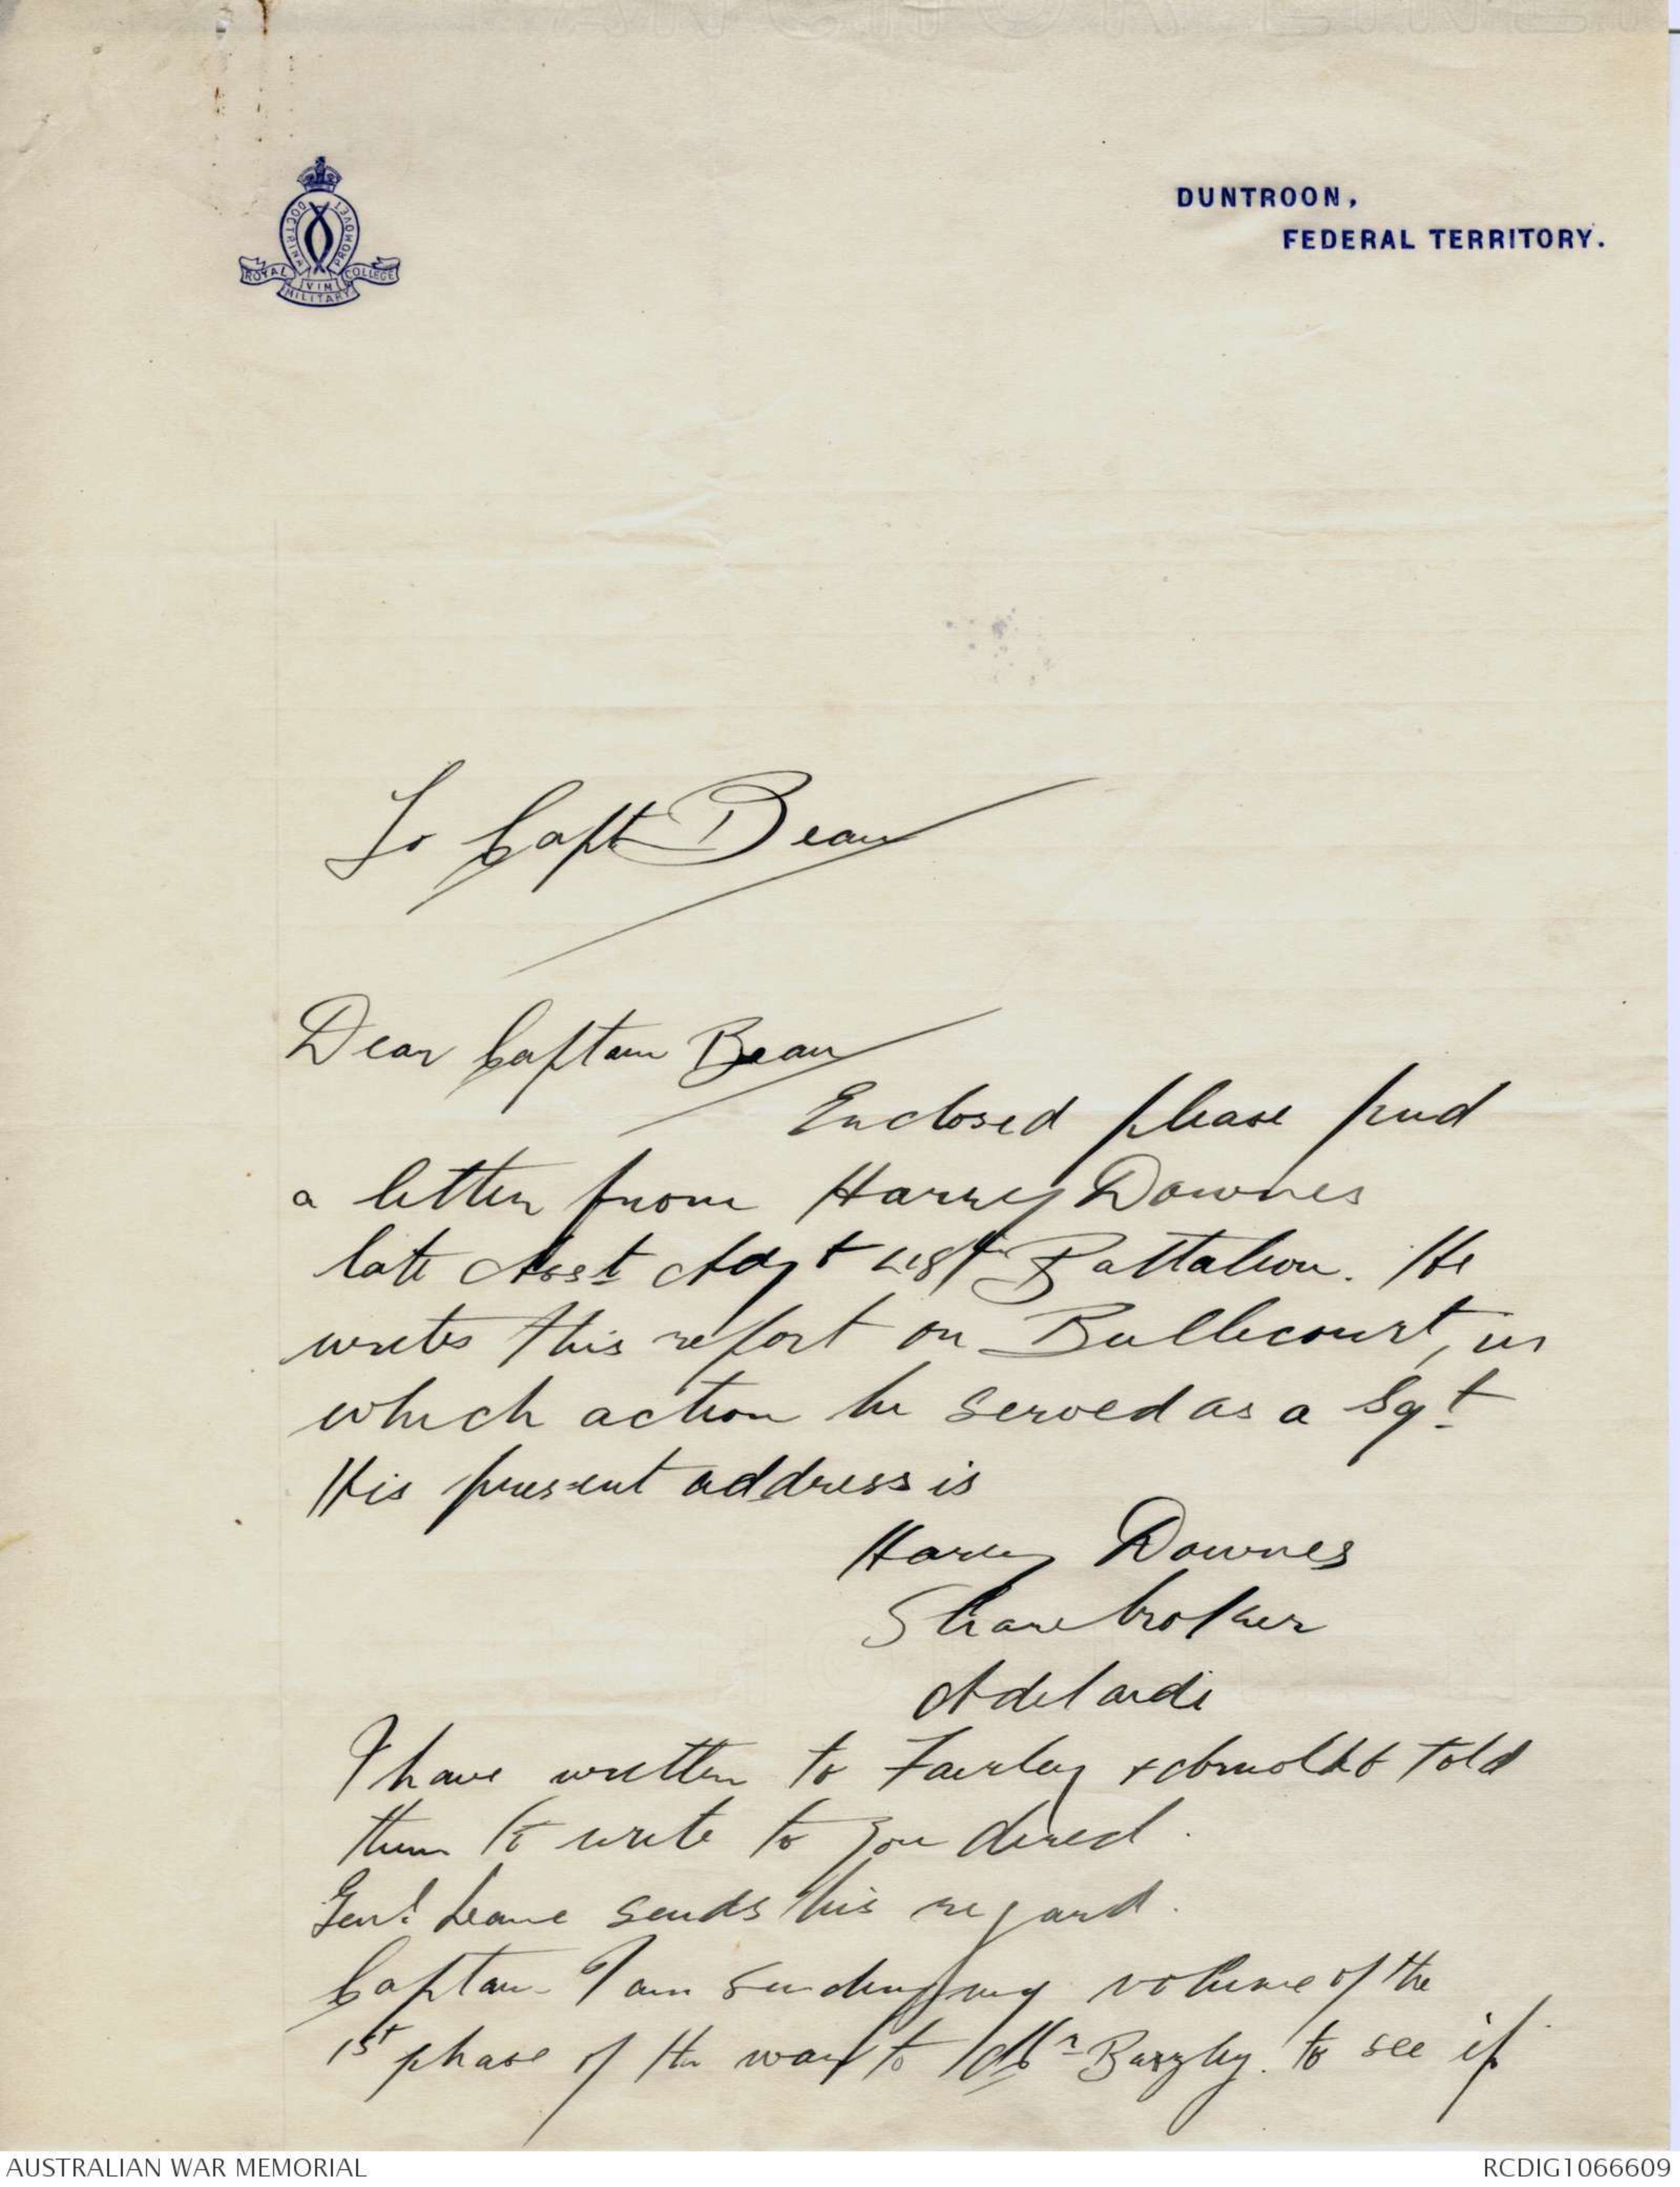 DOCTRINA VIM PROMOVET
ROYAL MILITARY COLLEGE
DUNTROON,
FEDERAL TERRITORY.
To Capt Bean
Dear Captain Bean
Enclosed please find
a letter from Harry Downes
late Asst Adjt 48th Battalion. He
writes this report on Bullecourt, in
which action he served as a Sgt
His present address is
Harry Downes
Sharebroker
Adelaide
I have written to Fairley + told
them to write to you direct.
Genl Leane sends his regard.
Captain I am sending my volume of the
1st phase of the war to Mr Bazley. to see if
AUSTRALIAN WAR MEMORIAL
RCDIG1066609